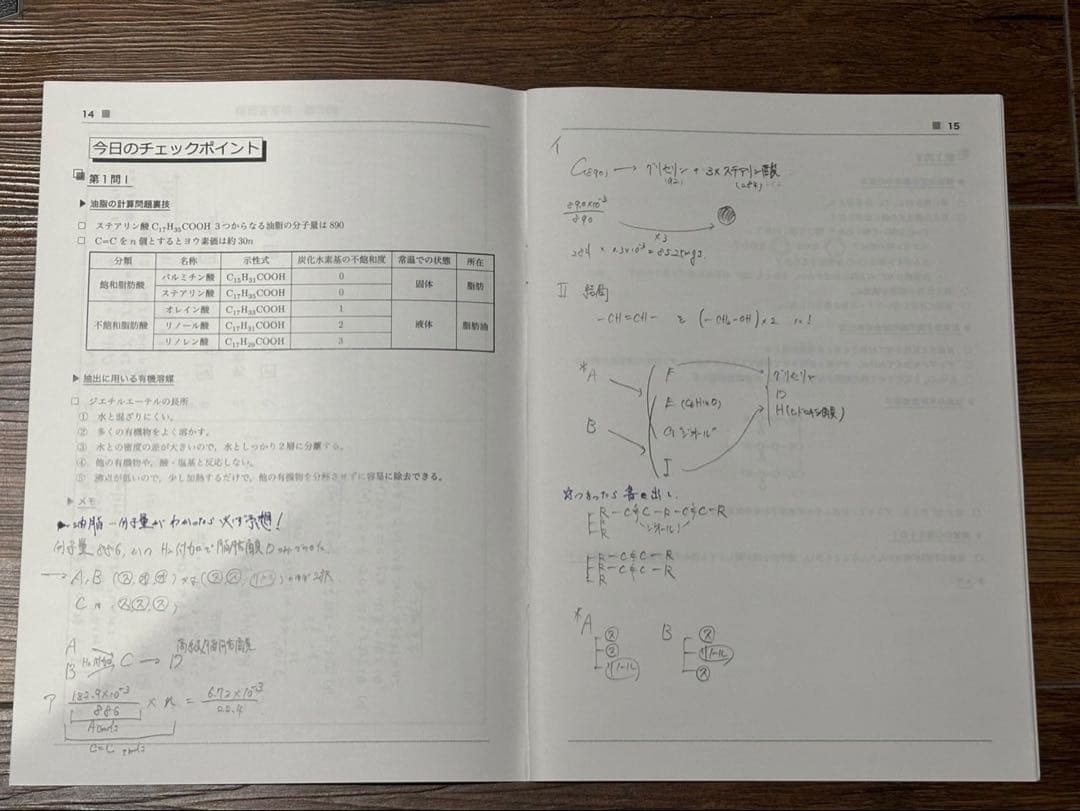 14
今日のチェックポイント
第1問 I
▶ 油脂の計算問題裏技
□ ステアリン酸 C₁₇H₃₅COOH 3つからなる油脂の分子量は890
□ C=C を n 個とするとヨウ素価は約30n
分類 名称 示性式 炭化水素基の不飽和度 常温での状態 所在
飽和脂肪酸 パルミチン酸 C₁₅H₃₁COOH 0 固体 脂肪
ステアリン酸 C₁₇H₃₅COOH 0
不飽和脂肪酸 オレイン酸 C₁₇H₃₃COOH 1 液体 脂肪油
リノール酸 C₁₇H₃₁COOH 2
リノレン酸 C₁₇H₂₉COOH 3
▶ 抽出に用いる有機溶媒
□ ジエチルエーテルの長所
① 水と混ざりにくい。
② 多くの有機物をよく溶かす。
③ 水との密度の差が大きいので，水としっかり2層に分離する。
④ 他の有機物や，酸・塩基と反応しない。
⑤ 沸点が低いので，少し加熱するだけで，他の有機物を分解させずに容易に除去できる。
▶ メモ
油脂 → 分子量がわかったら 必ず予想！
分子量 886, H₂付加で脂肪酸D
→ A, B
C は
A
B H₂付加 C → D
ア 182.9×10⁻³ / 886 × n = 6.72×10⁻³ / 22.4
A mol
C=C mol
15
イ
C(890) → グリセリン + 3×ステアリン酸
(92) (284)
89.0×10⁻³ / 890
×3
284 × 0.3×10⁻³ = 85.2 mg
II 結局
－CH=CH－ を (－CH₂－OH)×2 に！
*A F グリセリン
E (C₆H₁₂O) D
B G "ジオール" H (ヒドロキシ酸)
I
☆つまったら 書き出し
R－C≠C－R－C≠C－R
R
R ジオール！
R－C≠C－R
R－C≠C－R
R
*A ス B ス
ス リノール
リノール ス